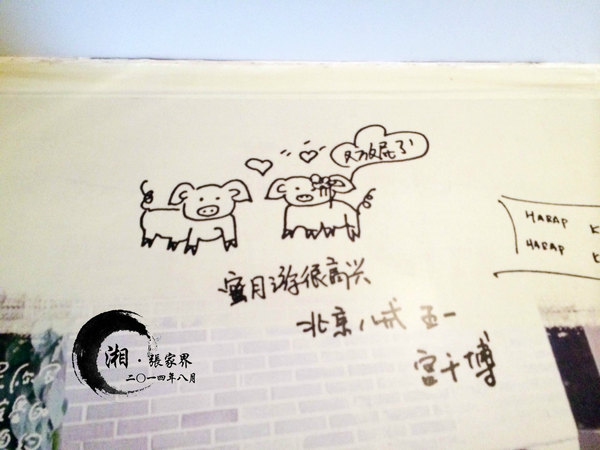 又放屁了
HARAP K
HARAP K
蜜月游很高兴
北京八戒 五一
宫千博
湘·張家界
二〇一四年八月